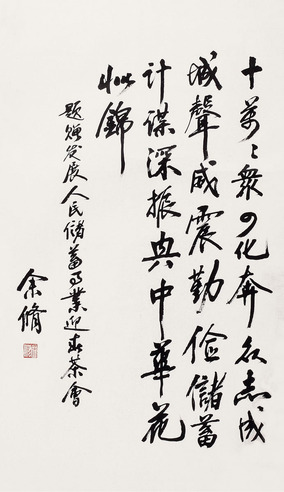 十萬〻衆四化奔众志成
城聲威震勤俭儲蓄
計謀深振興中華花
似錦
題贈發展人民儲蓄事業迎春茶會
余脩